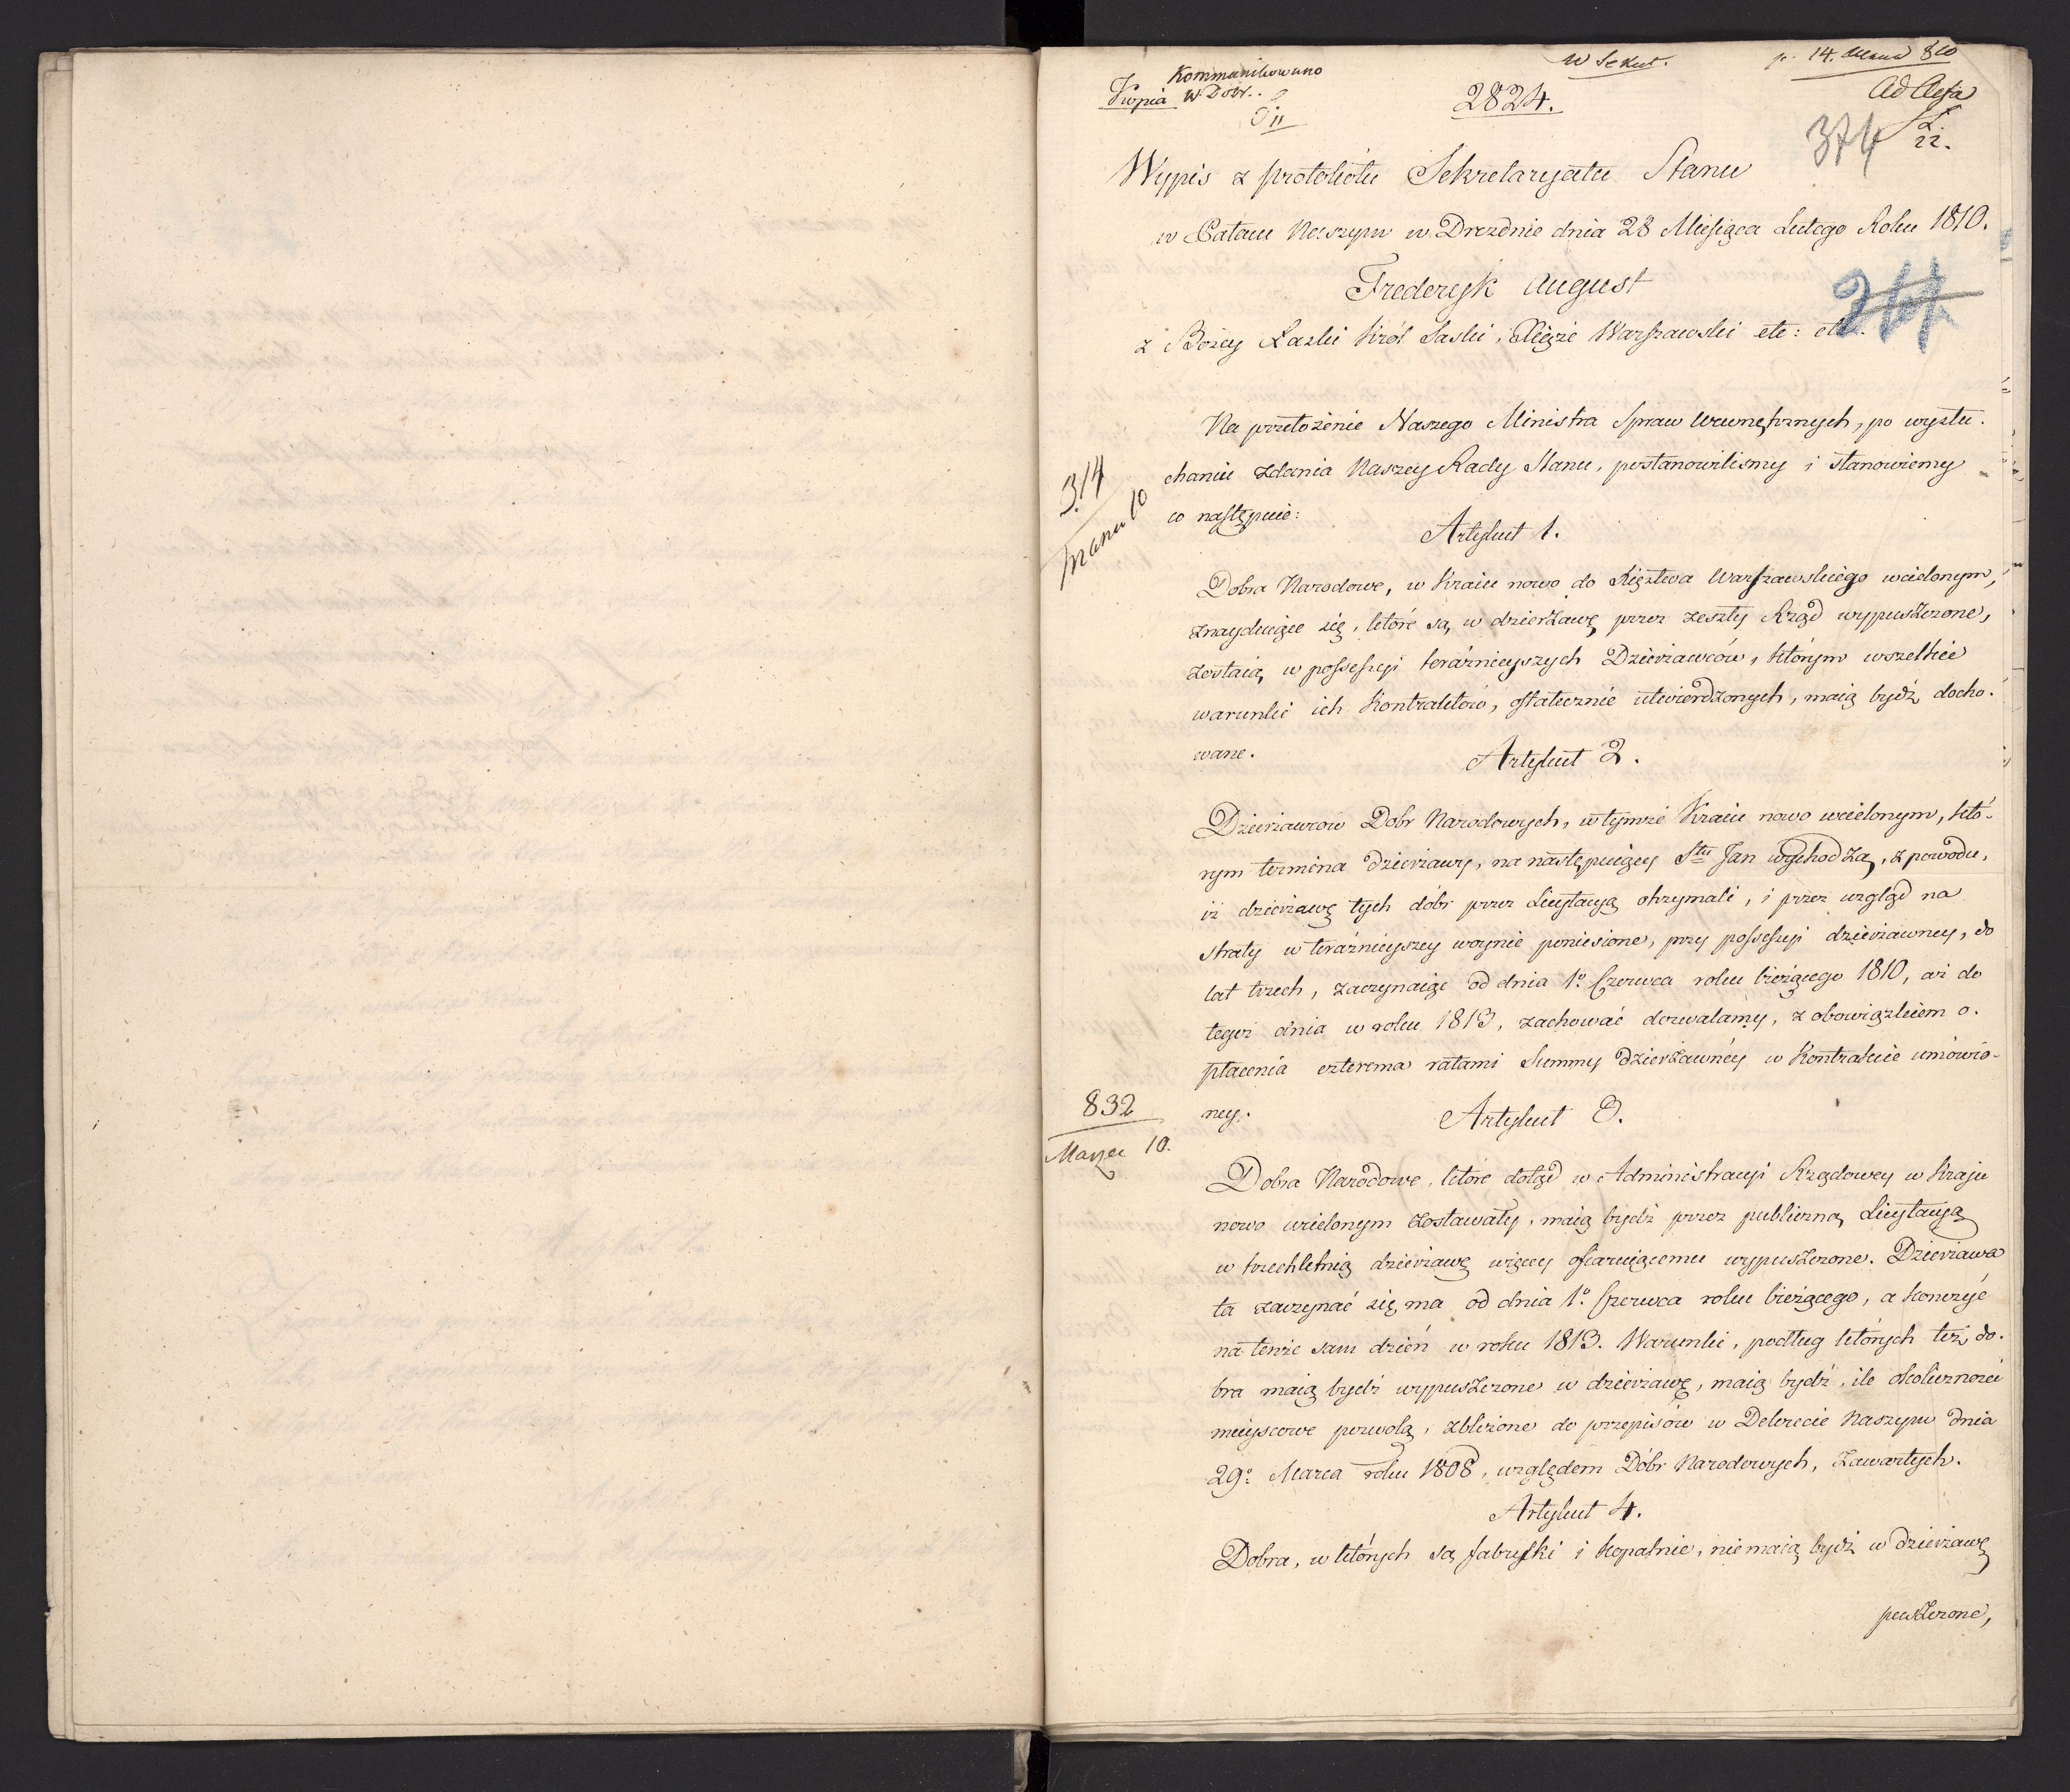 w Sekret. p. 14. Marca 810
Kommunikowano
Kopia W. Dobr.
2824.
Ad Acta
374
22.
Wypis z protokółu Sekretaryatu Stanu
w Pałacu Naszym w Dreznie dnia 28 Miesiąca Lutego Roku 1810.
Frederyk August
z Bożey Łaski Król Saski, Xiąże Warszawski etc: etc.
Na przełożenie Naszego Ministra Spraw Wewnętrznych, po wysłu-
chaniu zdania Naszey Rady Stanu, postanowiliśmy i stanowiemy
co następuie:
314
Marca 10
Artykuł 1.
Dobra Narodowe, w Kraiu nowo do Xięztwa Warszawskiego wcielonym,
znayduiące się, które są w dzierżawę przez zeszły Rząd wypuszczone,
zostaią w possessyi teraźnieyszych Dzierżawców, którym wszelkie
warunki ich Kontraktów, ostatecznie utwierdzonych, maią bydź docho-
wane.
Artykuł 2.
Dzierżawcow Dobr Narodowych, w tymże Kraiu nowo wcielonym, któ-
rym termina dzierżawy, na następuiący Sty Jan wychodzą, z powodu,
iż dzierżawę tych dóbr przez Licytacyą otrzymali, i przez wzgląd na
straty w teraźnieyszey woynie poniesione, przy possessyi dzierżawney, do
lat trzech, zaczynaiąc od dnia 1o Czerwca roku bieżącego 1810, aż do
tegoż dnia w roku 1813, zachować dozwalamy, z obowiązkiem o-
płacenia czterema ratami Summy dzierżawnéy w Kontrakcie umówio-
ney.
832
Marzec 10.
Artykuł 3.
Dobra Narodowe, które dotąd w Administracyi Rządowey w Kraju
nowo wcielonym zostawały, maią bydź przez publiczną Licytacyą
w trzechletnią dzierżawę więcey ofiaruiącemu wypuszczone. Dzierżawa
ta zaczynać się ma od dnia 1o Czerwca roku bieżącego, a kończyć
na tenże sam dzień w roku 1813. Warunki, podług których też do-
bra maią bydź wypuszczone w dzierżawę, maią bydź, ile okoliczności
mieyscowe pozwolą, zbliżone do przepisów w Dekrecie Naszym dnia
29o Marca roku 1808, względem Dóbr Narodowych, zawartych.
Artykuł 4.
Dobra, w których są fabryki i kopalnie, nie maią bydź w dzierżawę
puszczone,